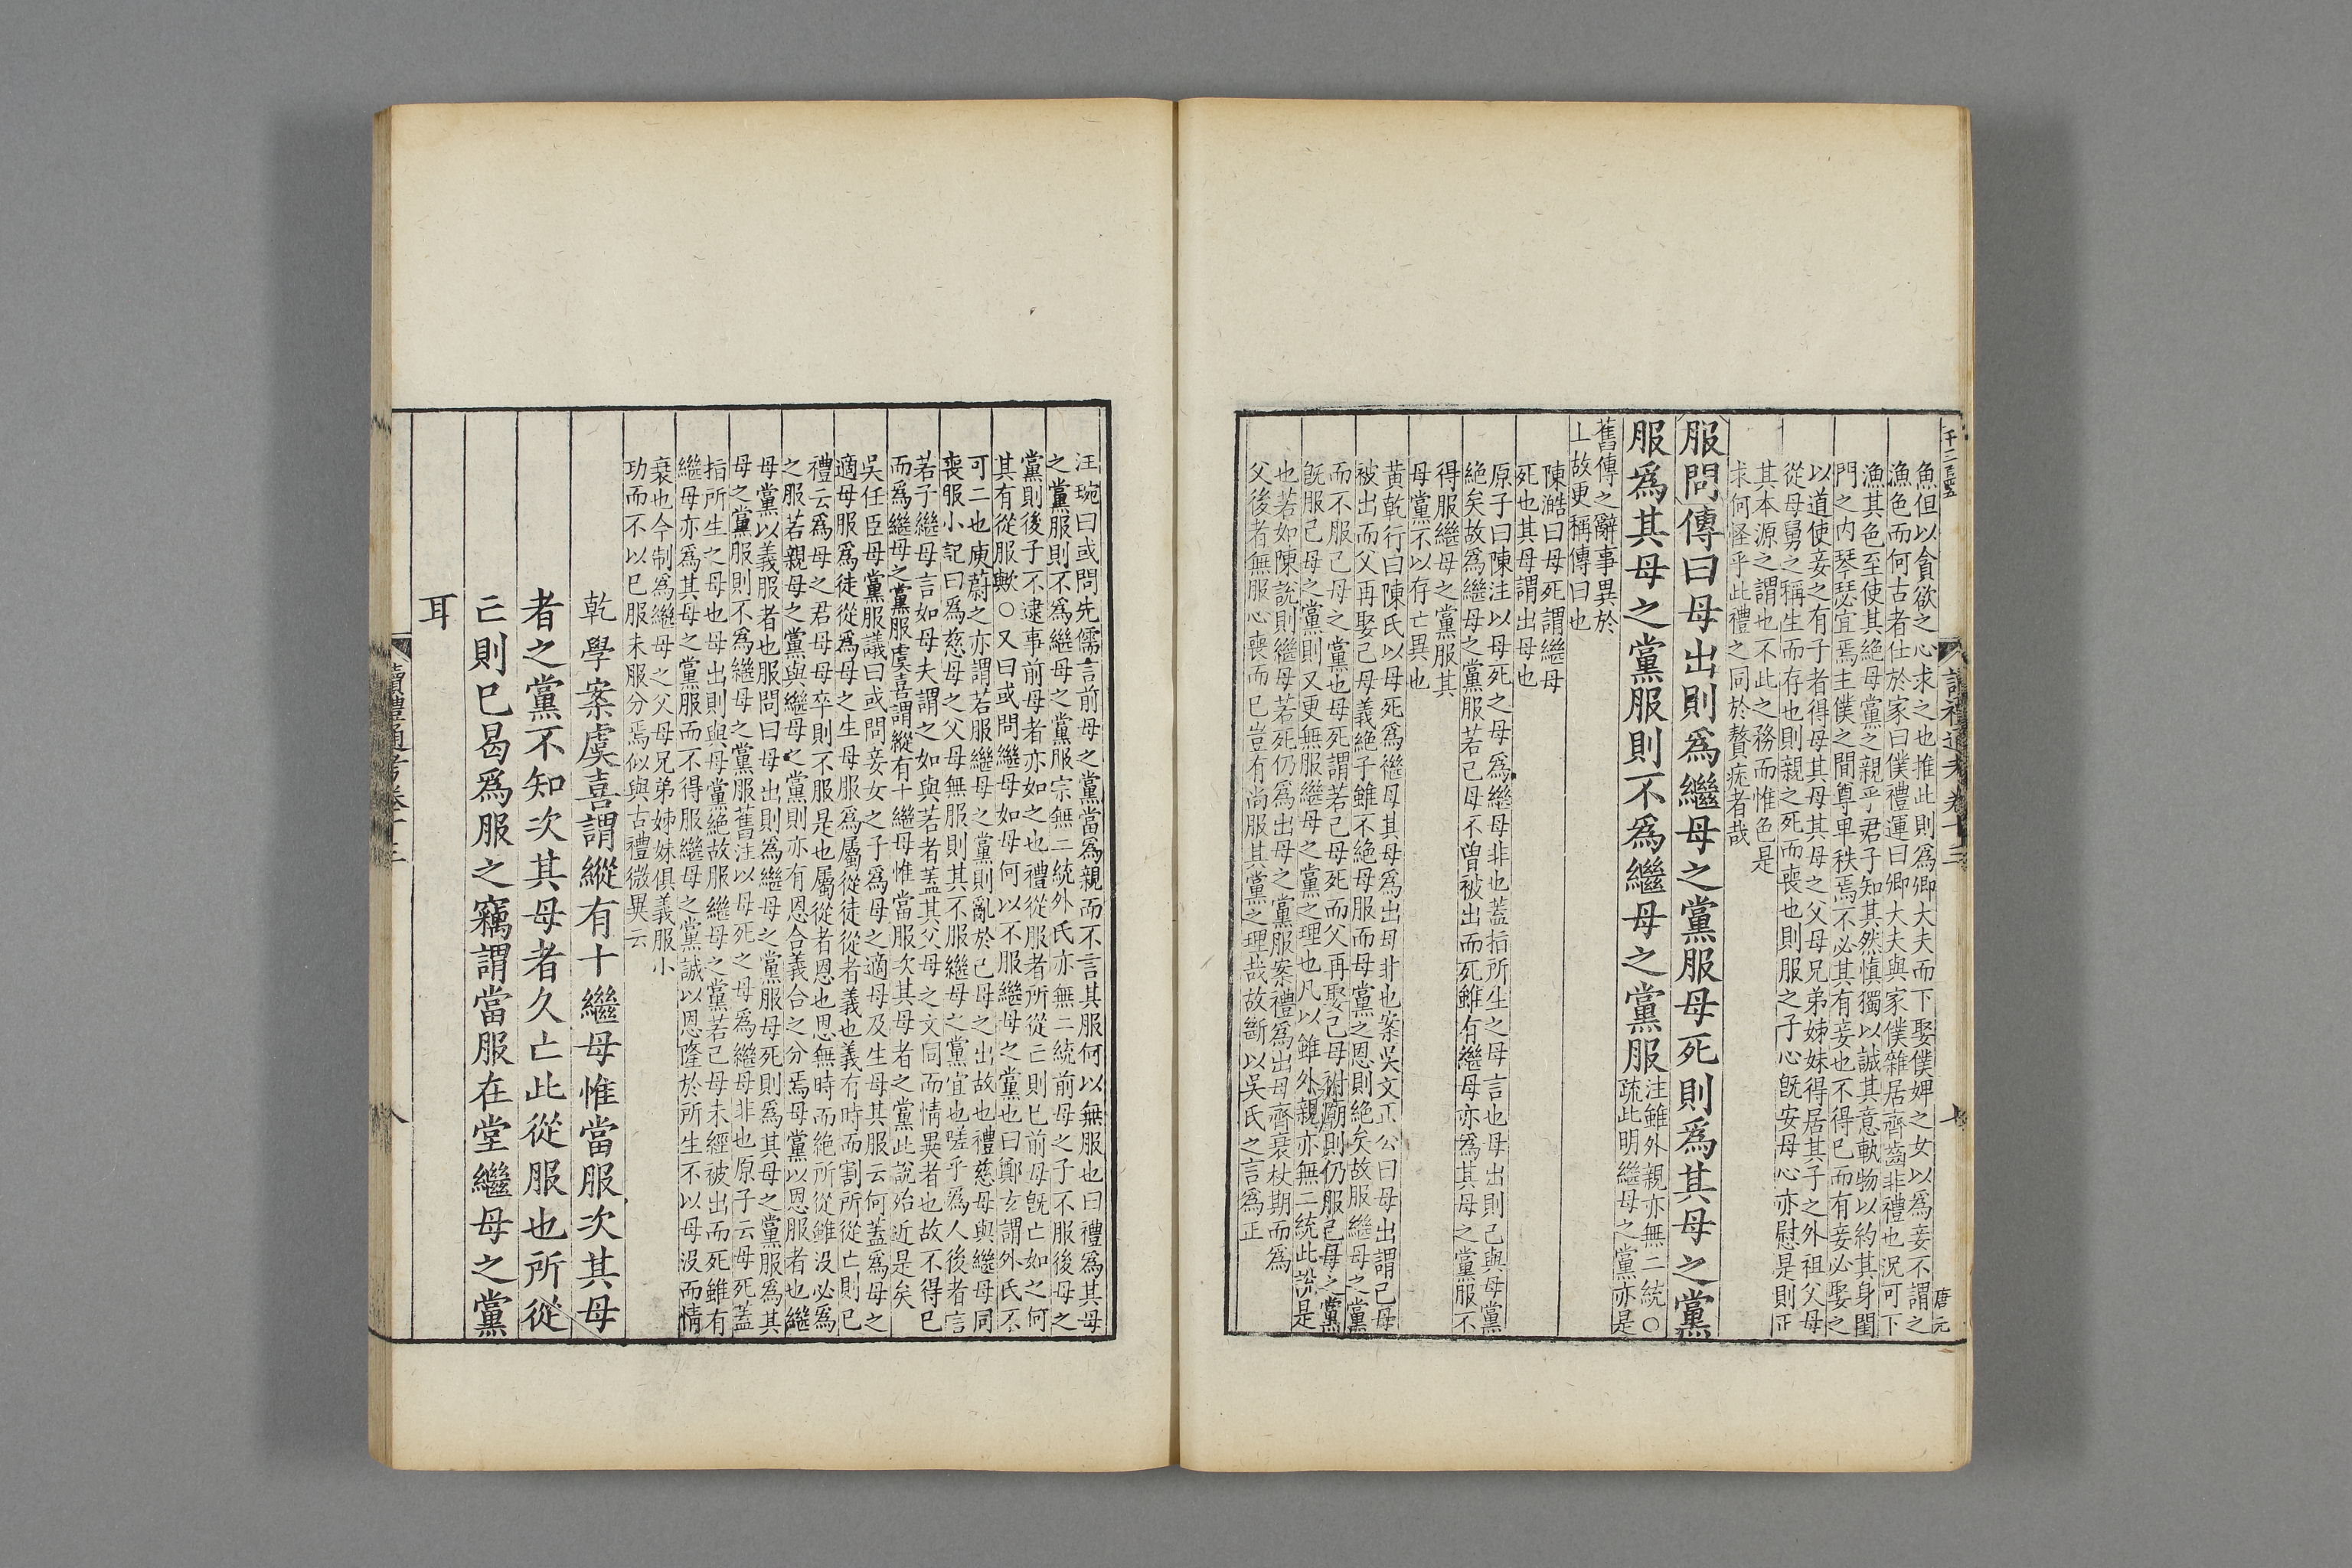 魚但以貪欲之心求之也推此則爲卿大夫而下娶僕婢之女以爲妾不謂之
漁色而何古者仕於家曰僕禮運曰卿大夫與家僕雜居齊齒非禮也況可下
漁其色至使其絶母黨之親乎君子知其然愼獨以誠其意軌物以約其身閨
門之内琴瑟宜焉主僕之間尊卑秩焉不必其有妾也不得已而有妾必娶之
以道使妾之有子者得母其母之父母兄弟姊妹得居其子之外祖父母
從母舅之稱生而存也則親之死而喪也則服之子心旣安母心亦慰是則正
其本源之謂也不此之務而惟色是
求何怪乎此禮之同於贅疣者哉
服問傳曰母出則爲繼母之黨服母死則爲其母之黨
服爲其母之黨服則不爲繼母之黨服
注雖外親亦無二統○
疏此明繼母之黨亦是
舊傳之辭事異於
上故更稱傳曰也
陳澔曰母死謂繼母
死也其母謂出母也
原子曰陳注以母死之母爲繼母非也蓋指所生之母言也母出則己與母黨
絶矣故爲繼母之黨服若己母不曾被出而死雖有繼母亦爲其母之黨服不
得服繼母之黨服其
母黨不以存亡異也
黄乾行曰陳氏以母死爲繼母其母爲出母非也案吳文正公曰母出謂己母
被出而父再娶己母義絶子雖不絶母服而母黨之恩則絶矣故服繼母之黨
而不服己母之黨也母死謂若己母死而父再娶己母祔廟則仍服己母之黨
旣服己母之黨則又更無服繼母之黨之理也凡以雖外親亦無二統此說是
也若如陳說則繼母若死仍爲出母之黨服案禮爲出母齊衰杖期而爲
父後者無服心喪而已豈有尚服其黨之理哉故斷以吳氏之言爲正
讀禮通考卷十三
七
唐元
汪琬曰或問先儒言前母之黨當爲親而不言其服何以無服也曰禮爲其母
之黨服則不爲繼母之黨服宗無二統外氏亦無二統前母之子不服後母之
黨則後子不逮事前母者亦如之也禮從服者所從亡則已前母旣亡如之何
其有從服歟○又曰或問繼母如母何以不服繼母之黨也曰鄭玄謂外氏不
可二也庾蔚之亦謂若服繼母之黨則亂於己母之出故也禮慈母與繼母同
喪服小記曰爲慈母之父母無服則其不服繼母之黨宜也嗟乎爲人後者言
若子繼母言如母夫謂之如與若者蓋其父母之文同而情異者也故不得已
而爲繼母之黨服虞喜謂縱有十繼母惟當服次其母者之黨此說殆近是矣
吳任臣母黨服議曰或問妾女之子爲母之適母及生母其服云何蓋爲母之
適母服爲徒從爲母之生母服爲屬從徒從者義也義有時而割所從亡則已
禮云爲母之君母母卒則不服是也屬從者恩也恩無時而絶所從雖没必爲
之服若親母之黨與繼母之黨則亦有恩合義合之分焉母黨以恩服者也繼
母黨以義服者也服問曰母出則爲繼母之黨服母死則爲其母之黨服爲其
母之黨服則不爲繼母之黨服舊注以母死之母爲繼母非也原子云母死蓋
指所生之母也母出則與母黨絶故服繼母之黨若己母未經被出而死雖有
繼母亦爲其母之黨服而不得服繼母之黨誠以恩隆於所生不以母没而情
衰也今制爲繼母之父母兄弟姊妹俱義服小
功而不以已服未服分焉似與古禮微異云
乾學案虞喜謂縱有十繼母惟當服次其母
者之黨不知次其母者久亡此從服也所從
亡則已曷爲服之竊謂當服在堂繼母之黨
耳
讀禮通考卷十三
八